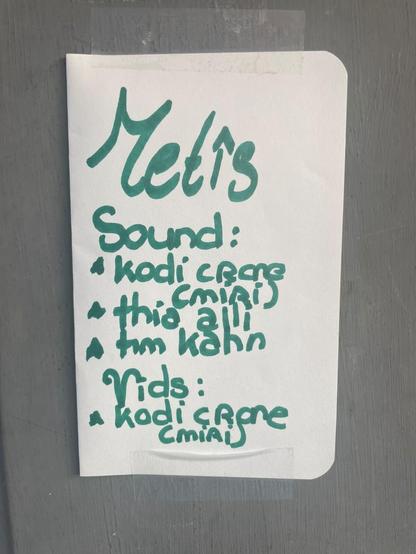 Metis
Sound:
kodi cRane
(miRi)
thia alli
tim kahn
Vids:
kodi cRane
(miRi)